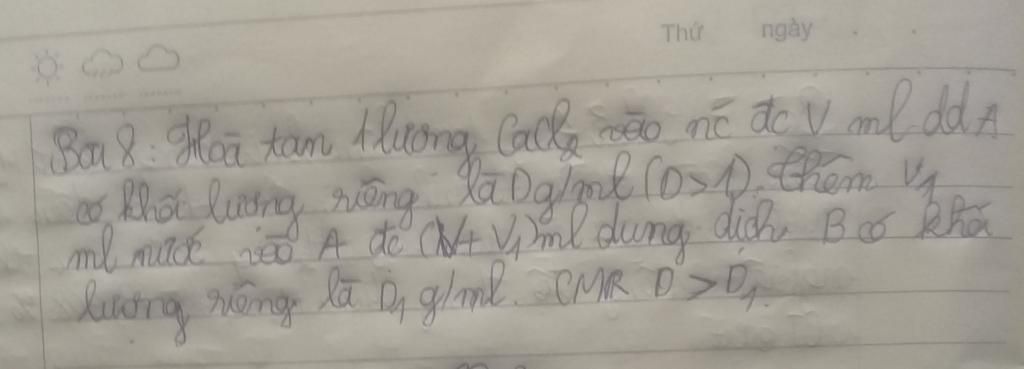 Thứ ngày . .
Bài 8: Hoà tan 1 lượng CaCl₂ vào nc đc V ml dd A
có khối lượng riêng là D g/ml (D>1). thêm V₁
ml nước vào A đc (V+V₁)ml dung dịch B có khối
lượng riêng là D₁ g/ml. CMR D > D₁.